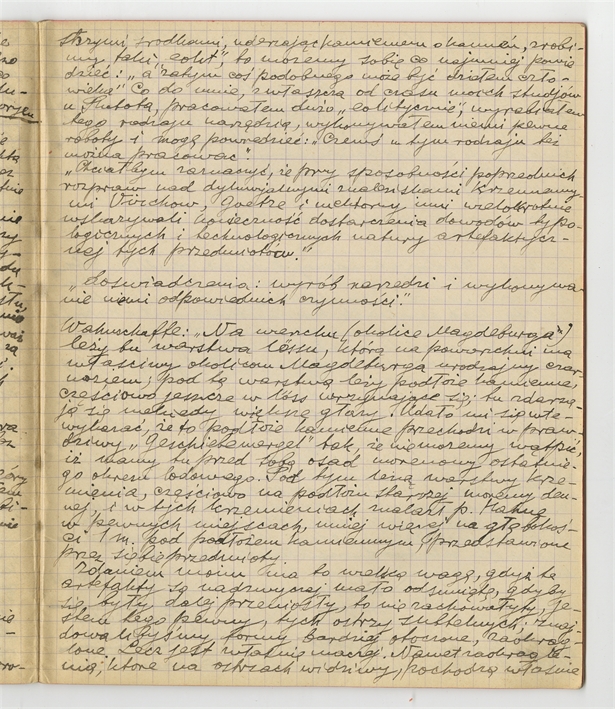 stszymi środkami, uderzając kamieniem o kamień, zrobi-
my taki „eolit", to możemy sobie co najmniej powie
dzieć: „a zatym coś podobnego może być dziełem czło-
wieka" Co do mnie, zwłaszcza od czasu moich studjów
u Rutota, pracowałem dużo „eolitycznie", wyrabiałem
tego rodzaju narzędzia, wykonywałem niemi pewne
roboty i mogę powiedzieć: „Czemś w tym rodzaju też
można pracować"
„Chciałbym zaznaczyć, iż przy sposobności poprzednich
rozpraw nad dyluwjalnymi znaleziskami krzemienny-
mi Virchow, Goetze i niektórzy inni wielokrotnie
wskazywali konieczność dostarczenia dowodów typo-
logicznych i technologicznych natury artefaktycz-
nej tych przedmiotów."
„doświadczenia: wyrób narzędzi i wykonywa-
nie niemi odpowiednich czynności."
Wahnschaffe: „Na wierzchu (okolice Magdeburga)
leży tu warstwa lössu, która na powierzchni ma
właściwy okolicom Magdeburga urodzajny czar-
noziem; pod tą warstwą leży podłoże kamienne,
częściowo jeszcze w löss wrzynające się; tu zdarza-
ją się niekiedy większe głazy. Udało mi się wte-
wykazać, że to podłoże kamienne przechodzi w praw-
dziwy „Geschiebemergel" tak, że nie możemy wątpić,
iż mamy tu przed sobą osad morenowy ostatnie-
go okresu lodowego. Pod tym leżą warstwy krze-
mienia, częściowo na podłożu starszej moreny den-
nej, i w tych krzemieniach znalazł p. Hahne
w pewnych miejscach, mniej więcej na głębokoś-
ci 1 m. pod podłożem kamiennym, przedstawione
przez siebie przedmioty.
Zdaniem moim ma to wielką wagę, gdyż te
artefakty są nadzwyczaj mało odsunięte, gdyby
się były dalej przeniosły, to nie zachowałyby, je-
stem tego pewny, tych ostrzy subtelnych; znaj-
dowalibyśmy formy bardziej otoczone, zaokrąg-
lone Lecz jest właśnie inaczej. Nawet zaokrągle-
nia, które na ostrzach widzimy, pochodzą właśnie